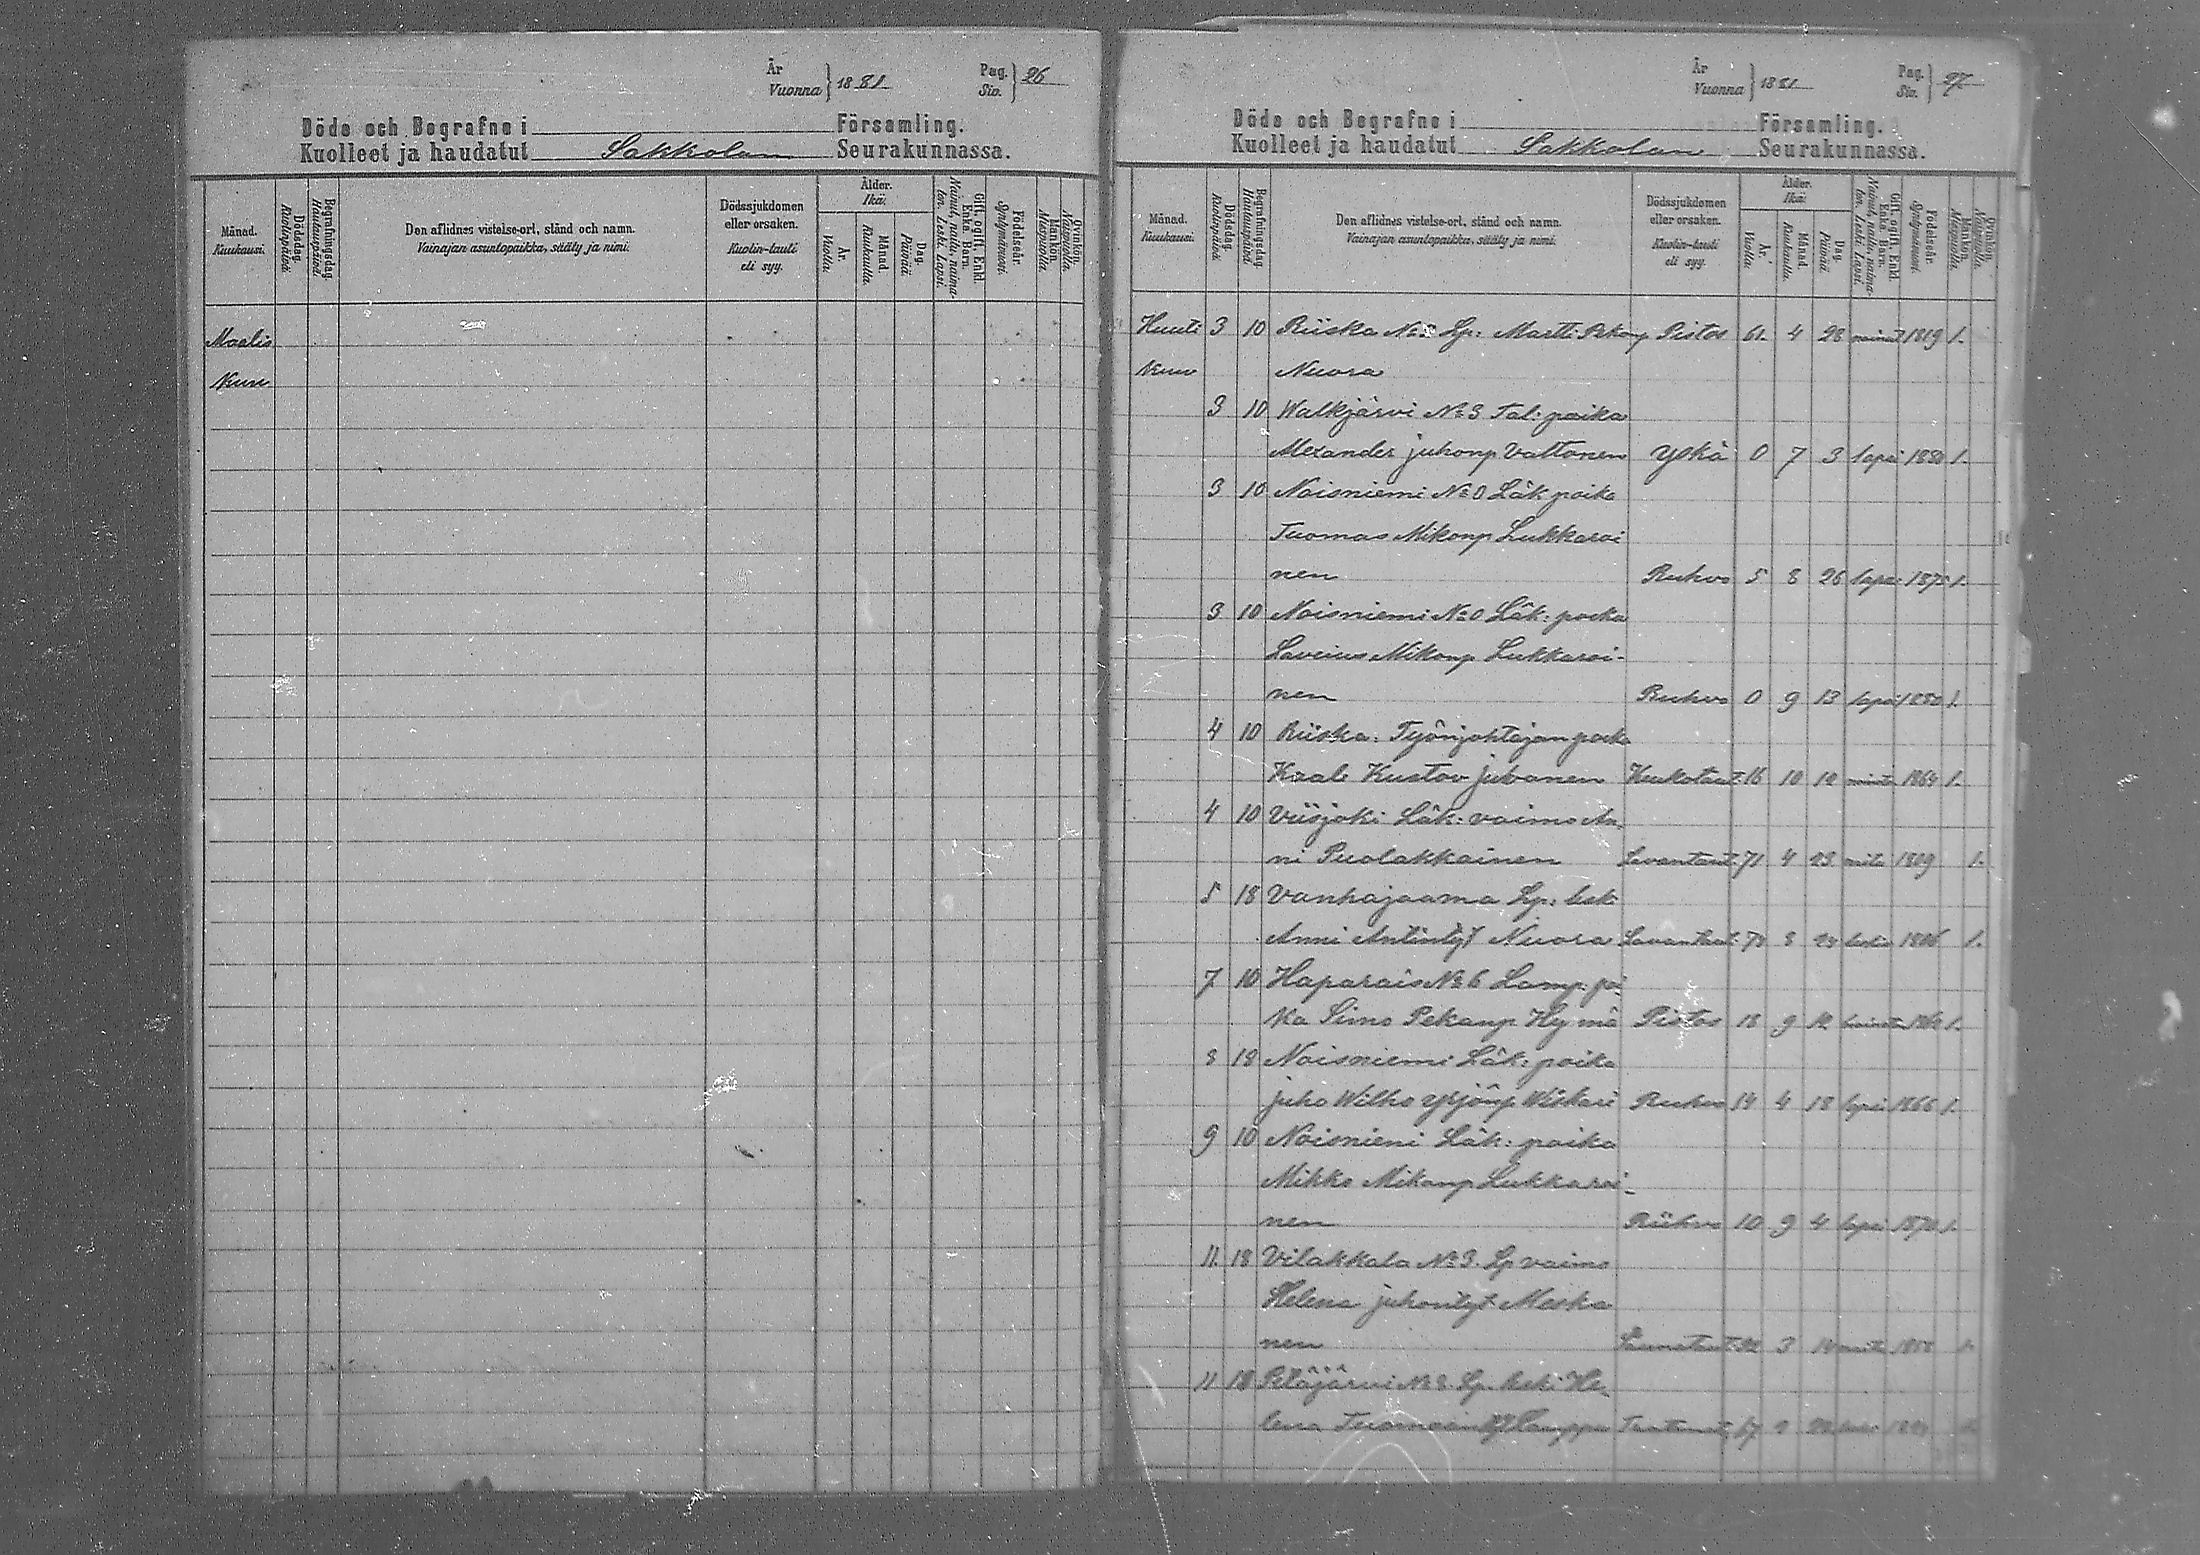 År
Vuonna } 1881 Pag. Siv. } 26
Döde och Begrafne i Församling.
Kuolleet ja haudatut Sakkolan Seurakunnassa.
Månad. Kuukausi. Dödsdag. Kuolinpäivä. Begrafningsdag. Hautauspäivä. Den aflidnes vistelse-ort, stånd och namn. Vainajan asuntopaikka, sääty ja nimi. Dödssjukdomen eller orsaken. Kuolin-tauti eli syy. Ålder. Ikä. År. Vuotta. Månad. Kuukautta. Dag. Päivää. Gift, ogift, Enkl. Enka. Barn. Nainut, naitu, naimaton. Leski. Lapsi. Födelseår. Syntymävuosi. Mankön. Miespuolia. Qvinkön. Naispuolia.
Maalis
Kuu
År
Vuonna } 1881 Pag. Siv. } 27
Döde och Begrafne i Församling.
Kuolleet ja haudatut Sakkolan Seurakunnassa.
Månad. Kuukausi. Dödsdag. Kuolinpäivä. Begrafningsdag. Hautauspäivä. Den aflidnes vistelse-ort, stånd och namn. Vainajan asuntopaikka, sääty ja nimi. Dödssjukdomen eller orsaken. Kuolin-tauti eli syy. Ålder. Ikä. År. Vuotta. Månad. Kuukautta. Dag. Päivää. Gift, ogift, Enkl. Enka. Barn. Nainut, naitu, naimaton. Leski. Lapsi. Födelseår. Syntymävuosi. Mankön. Miespuolia. Qvinkön. Naispuolia.
Huuti 3 10 Riiska Lp: Martti Pekanp Pistos 61 4 28 nainut 1819 1.
Kuu Nuora
3 10 Walkjärvi No 3 Tal: poika
Alexander juhonp Vattonen Yskä 0 7 3 lapsi 1880 1.
3 10 Noisniemi No 0 Läk poika
Tuomas Mikonp Lukkaroi
nen Ruhvo 5 8 26 lapsi 1875 1.
3 10 Noisniemi No 0 Läk: poika
Mikonp Lukkaroi-
nen Ruhvo 0 9 13 lapsi 1880 1.
4 10 Riiska: Työnjohtajan poika
Kaal Kustav juvonen Keukotaut 16 10 1864 1.
4 10 Viisjoki Läk: vaimo An
ni Puolakkainen Lavantaut 71 4 23 1809 1.
5 18 Vanhajaama Lp: lesk
Anni Antintyt Nuora Lavantaut 8 leski 1.
7 10 Haparais No 6 Lamp: poi
ka Simo Pekanp Hymä Pistos 18 9 1.
8 18 Noisniemi Läk: poika
juho Wilho yrjönp Wiskari Ruhvo 14 4 18 lapsi 1866 1.
9 10 Noisniemi Läk: poika
Mikko Mikonp Lukkaroi-
nen Ruhvo 10 9 4 lapsi 1870 1.
11. 18 Vilakkala No 3. Lp vaimo
Helena juhontyt Meska
nen 3 1.
11 18 Petäjärvi Lp. leski He
lena Tuomaintyt